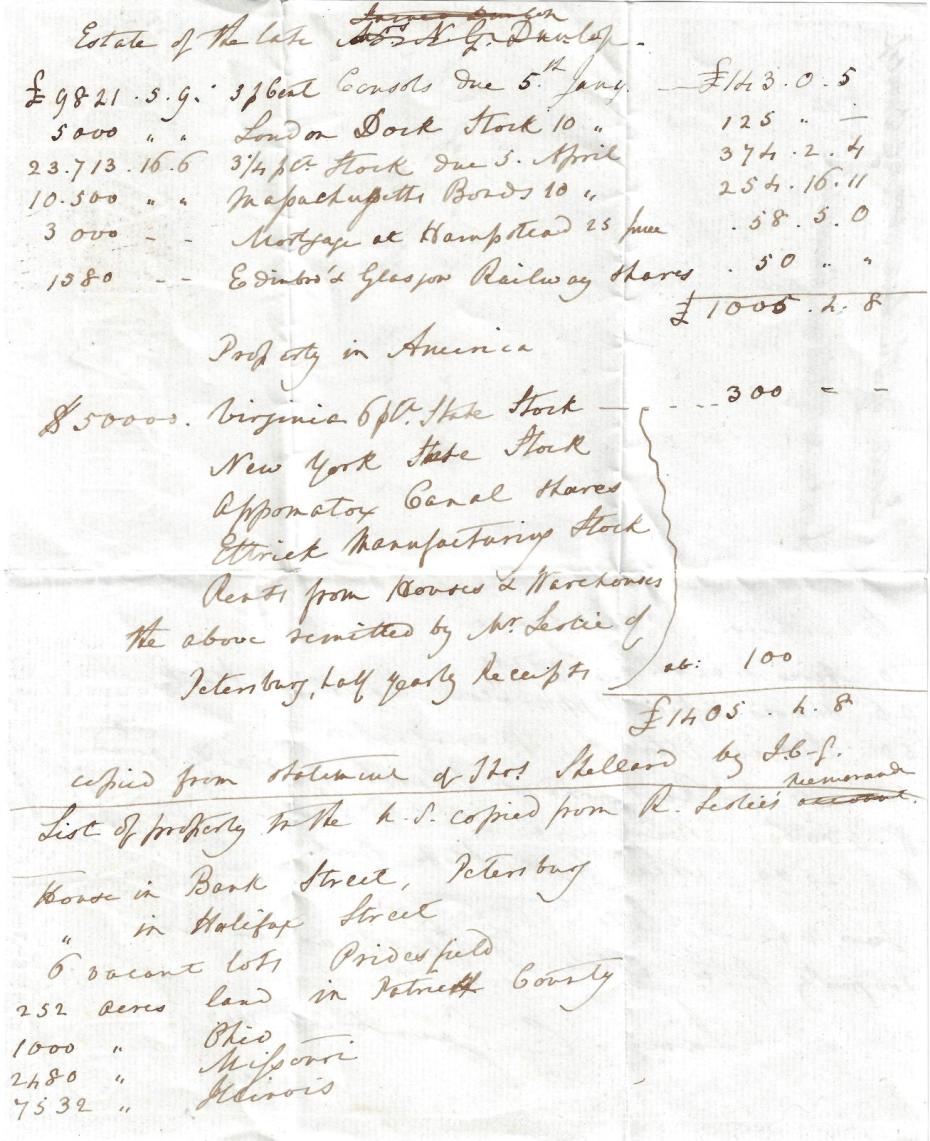 Estate of the late Mrs N. G. Dunlop.
£9821.5.9. 3 p Cent Consols due 5th Jany. — £143.0.5
5000 " " London Dock Stock 10 " 125 " —
23.713.16.6 3¼ pCt. Stock due 5. April 374.2.4
10.500 " " Massachusetts Bonds 10 " 254.16.11
3000 - - Mortgage at Hampstead 25 June . 58.5.0
1580 - - Edinbro' & Glasgow Railway shares . 50 " "
£1005.4.8
Property in America
$50000. Virginia 6 pCt. State Stock — - - - 300 - -
New York State Stock
Appomatox Canal shares
Ettrick Manufacturing Stock
Rents from Houses & Warehouses
the above remitted by Mr. Leslie of
Petersburg, half yearly Receipts ab: 100
£1405.4.8
copied from statement of Thos. Shellard by J.C-G.
memoranda
List of property in the U.S. copied from R Leslie's account.
House in Bank Street, Petersburg
" in Halifax Street
6 vacant lots Pridesfield
252 acres land in Patrick County
1000 " Ohio
2480 " Missouri
7532 " Illinois